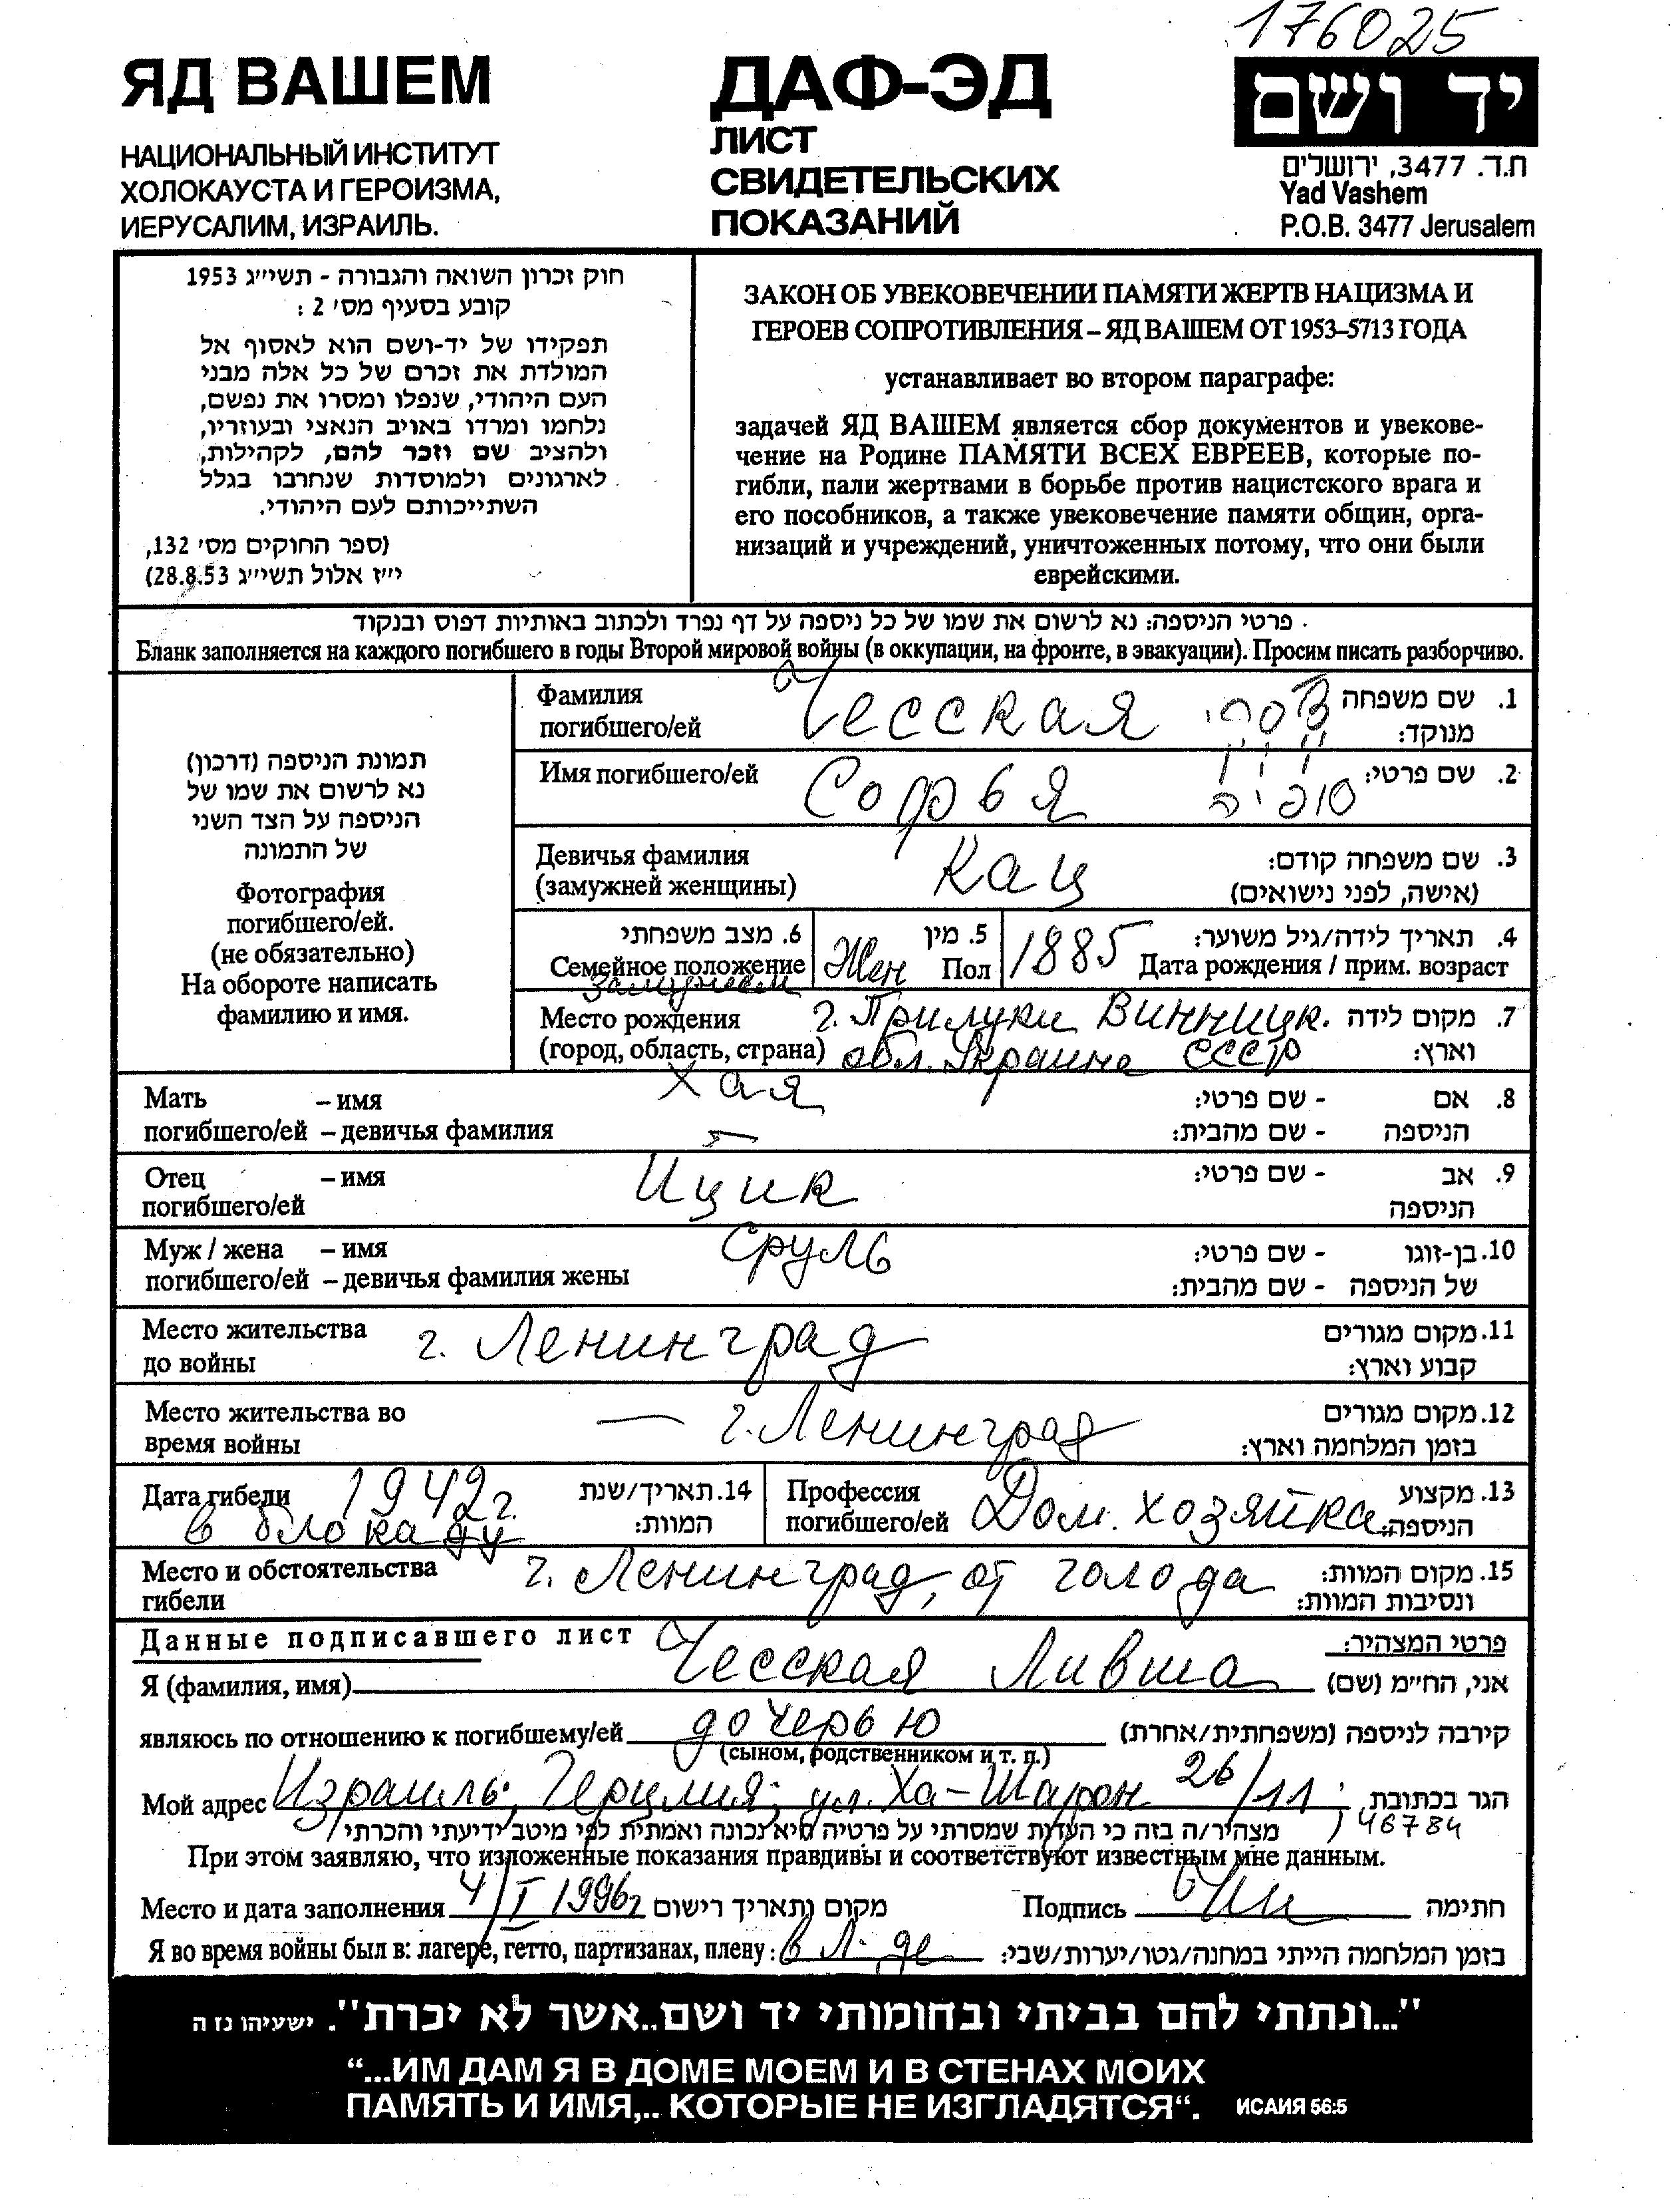 176025
ЯД ВАШЕМ
НАЦИОНАЛЬНЫЙ ИНСТИТУТ
ХОЛОКАУСТА И ГЕРОИЗМА,
ИЕРУСАЛИМ, ИЗРАИЛЬ.
ДАФ-ЭД
ЛИСТ
СВИДЕТЕЛЬСКИХ
ПОКАЗАНИЙ
יד ושם
ת.ד. 3477, ירושלים
Yad Vashem
P.O.B. 3477 Jerusalem
חוק זכרון השואה והגבורה - תשי״ג 1953
קובע בסעיף מס׳ 2 :
תפקידו של יד-ושם הוא לאסוף אל
המולדת את זכרם של כל אלה מבני
העם היהודי, שנפלו ומסרו את נפשם,
נלחמו ומרדו באויב הנאצי ובעוזריו,
ולהציב שם וזכר להם, לקהילות,
לארגונים ולמוסדות שנחרבו בגלל
השתייכותם לעם היהודי.
(ספר החוקים מס׳ 132,
י״ז אלול תשי״ג 28.8.53)
ЗАКОН ОБ УВЕКОВЕЧЕНИИ ПАМЯТИ ЖЕРТВ НАЦИЗМА И
ГЕРОЕВ СОПРОТИВЛЕНИЯ – ЯД ВАШЕМ ОТ 1953–5713 ГОДА
устанавливает во втором параграфе:
задачей ЯД ВАШЕМ является сбор документов и увекове-
чение на Родине ПАМЯТИ ВСЕХ ЕВРЕЕВ, которые по-
гибли, пали жертвами в борьбе против нацистского врага и
его пособников, а также увековечение памяти общин, орга-
низаций и учреждений, уничтоженных потому, что они были
еврейскими.
פרטי הניספה: נא לרשום את שמו של כל ניספה על דף נפרד ולכתוב באותיות דפוס ובנקוד
Бланк заполняется на каждого погибшего в годы Второй мировой войны (в оккупации, на фронте, в эвакуации). Просим писать разборчиво.
תמונת הניספה (דרכון)
נא לרשום את שמו של
הניספה על הצד השני
של התמונה
Фотография
погибшего/ей.
(не обязательно)
На обороте написать
фамилию и имя.
Фамилия
погибшего/ей
Чесская
1. שם משפחה
מנוקד:
Имя погибшего/ей
Софья
סופיה
2. שם פרטי:
Девичья фамилия
(замужней женщины)
Кац
3. שם משפחה קודם:
(אישה, לפני נישואים)
6. מצב משפחתי
Семейное положение
Замужем
5. מין
Пол
Жен
1885
4. תאריך לידה/גיל משוער:
Дата рождения / прим. возраст
Место рождения
(город, область, страна)
г. Прилуки Винницк.
обл. Украина СССР
7. מקום לידה
וארץ:
Мать – имя
погибшего/ей – девичья фамилия
Хая
8. אם - שם פרטי:
הניספה - שם מהבית:
Отец – имя
погибшего/ей
Ицик
9. אב - שם פרטי:
הניספה
Муж / жена – имя
погибшего/ей – девичья фамилия жены
Сруль
10. בן-זוגו - שם פרטי:
של הניספה - שם מהבית:
Место жительства
до войны
г. Ленинград
11. מקום מגורים
קבוע וארץ:
Место жительства во
время войны
— г. Ленинград
12. מקום מגורים
בזמן המלחמה וארץ:
Дата гибели
1942 г.
в блокаду
14. תאריך/שנת
המוות:
Профессия
погибшего/ей
Дом. хозяйка
13. מקצוע
הניספה:
Место и обстоятельства
гибели
г. Ленинград, от голода
15. מקום המוות:
ונסיבות המוות:
Данные подписавшего лист
פרטי המצהיר:
Я (фамилия, имя) Чесская Ливша אני, החי״מ (שם)
являюсь по отношению к погибшему/ей дочерью קירבה לניספה (משפחתית/אחרת)
(сыном, родственником и т. п.)
Мой адрес Израиль; Герцлия; ул. Ха-Шарон 26/11; הגר בכתובת
46784
מצהיר/ה בזה כי העדות שמסרתי על פרטיה היא נכונה ואמתית לפי מיטב ידיעתי והכרתי
При этом заявляю, что изложенные показания правдивы и соответствуют известным мне данным.
Место и дата заполнения 4/I 1996г מקום ותאריך רישום Подпись חתימה
Я во время войны был в: лагере, гетто, партизанах, плену: в Л-де בזמן המלחמה הייתי במחנה/גטו/יערות/שבי:
"...ונתתי להם בביתי ובחומותי יד ושם..אשר לא יכרת". ישעיהו נז ה
“...ИМ ДАМ Я В ДОМЕ МОЕМ И В СТЕНАХ МОИХ
ПАМЯТЬ И ИМЯ,.. КОТОРЫЕ НЕ ИЗГЛАДЯТСЯ“. ИСАИЯ 56:5